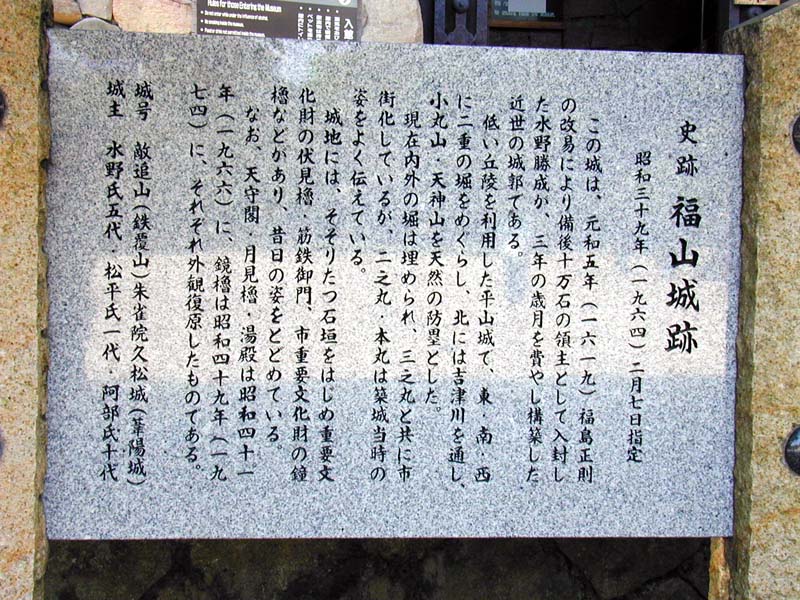 史跡 福山城跡
昭和三十九年(一九六四)二月七日指定
この城は、元和五年(一六一九)福島正則
の改易により備後十万石の領主として入封し
た水野勝成が、三年の歳月を費やし構築した
近世の城郭である。
低い丘陵を利用した平山城で、東・南・西
に二重の堀をめぐらし、北には吉津川を通し、
小丸山・天神山を天然の防塁とした。
現在内外の堀は埋められ、三之丸と共に市
街化しているが、二之丸・本丸は築城当時の
姿をよく伝えている。
城地には、そそりたつ石垣をはじめ重要文
化財の伏見櫓・筋鉄御門、市重要文化財の鐘
櫓などがあり、昔日の姿をとどめている。
なお、天守閣 月見櫓・湯殿は昭和四十一
年(一九六六)に、鏡櫓は昭和四十九年(一九
七四)に、それぞれ外観復原したものである。
城号 敵追山(鉄覆山)朱雀院久松城(葦陽城)
城主 水野氏五代・松平氏一代・阿部氏十代
Rules for those Entering the Museum
入館